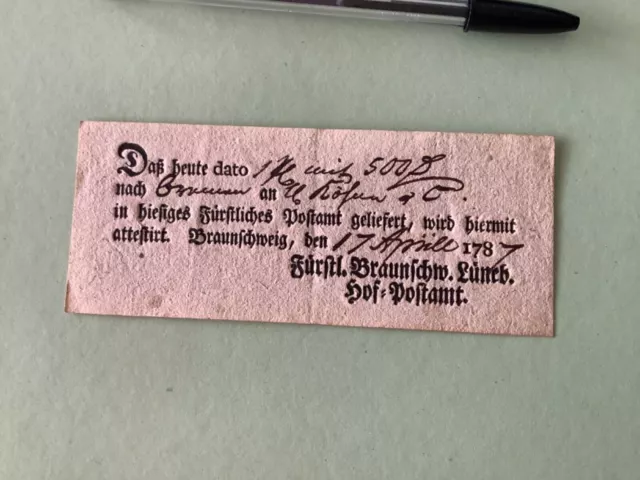 Daß heute dato 1 P. mit 500
nach Bremen an
in hiesiges Fürstliches Postamt geliefert, wird hiermit
attestirt. Braunschweig, den 17 Aprill 1787
Fürstl. Braunschw. Lüneb.
Hof-Postamt.